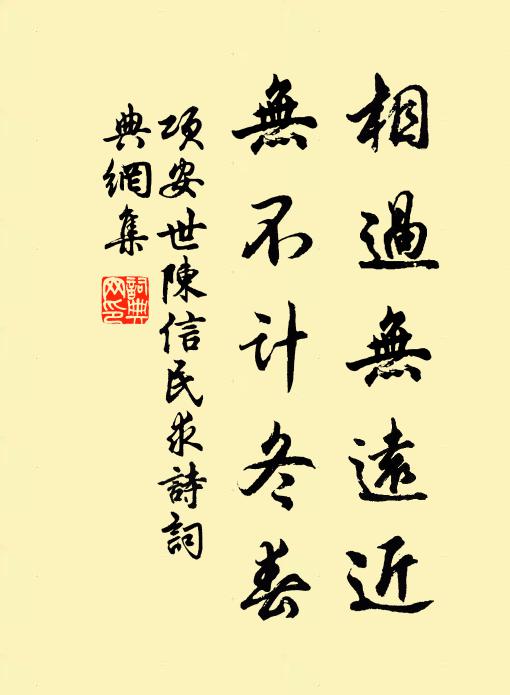 相過無遠近
無不計冬春
項安世陳信民求詩詞
典網集
詞典網印